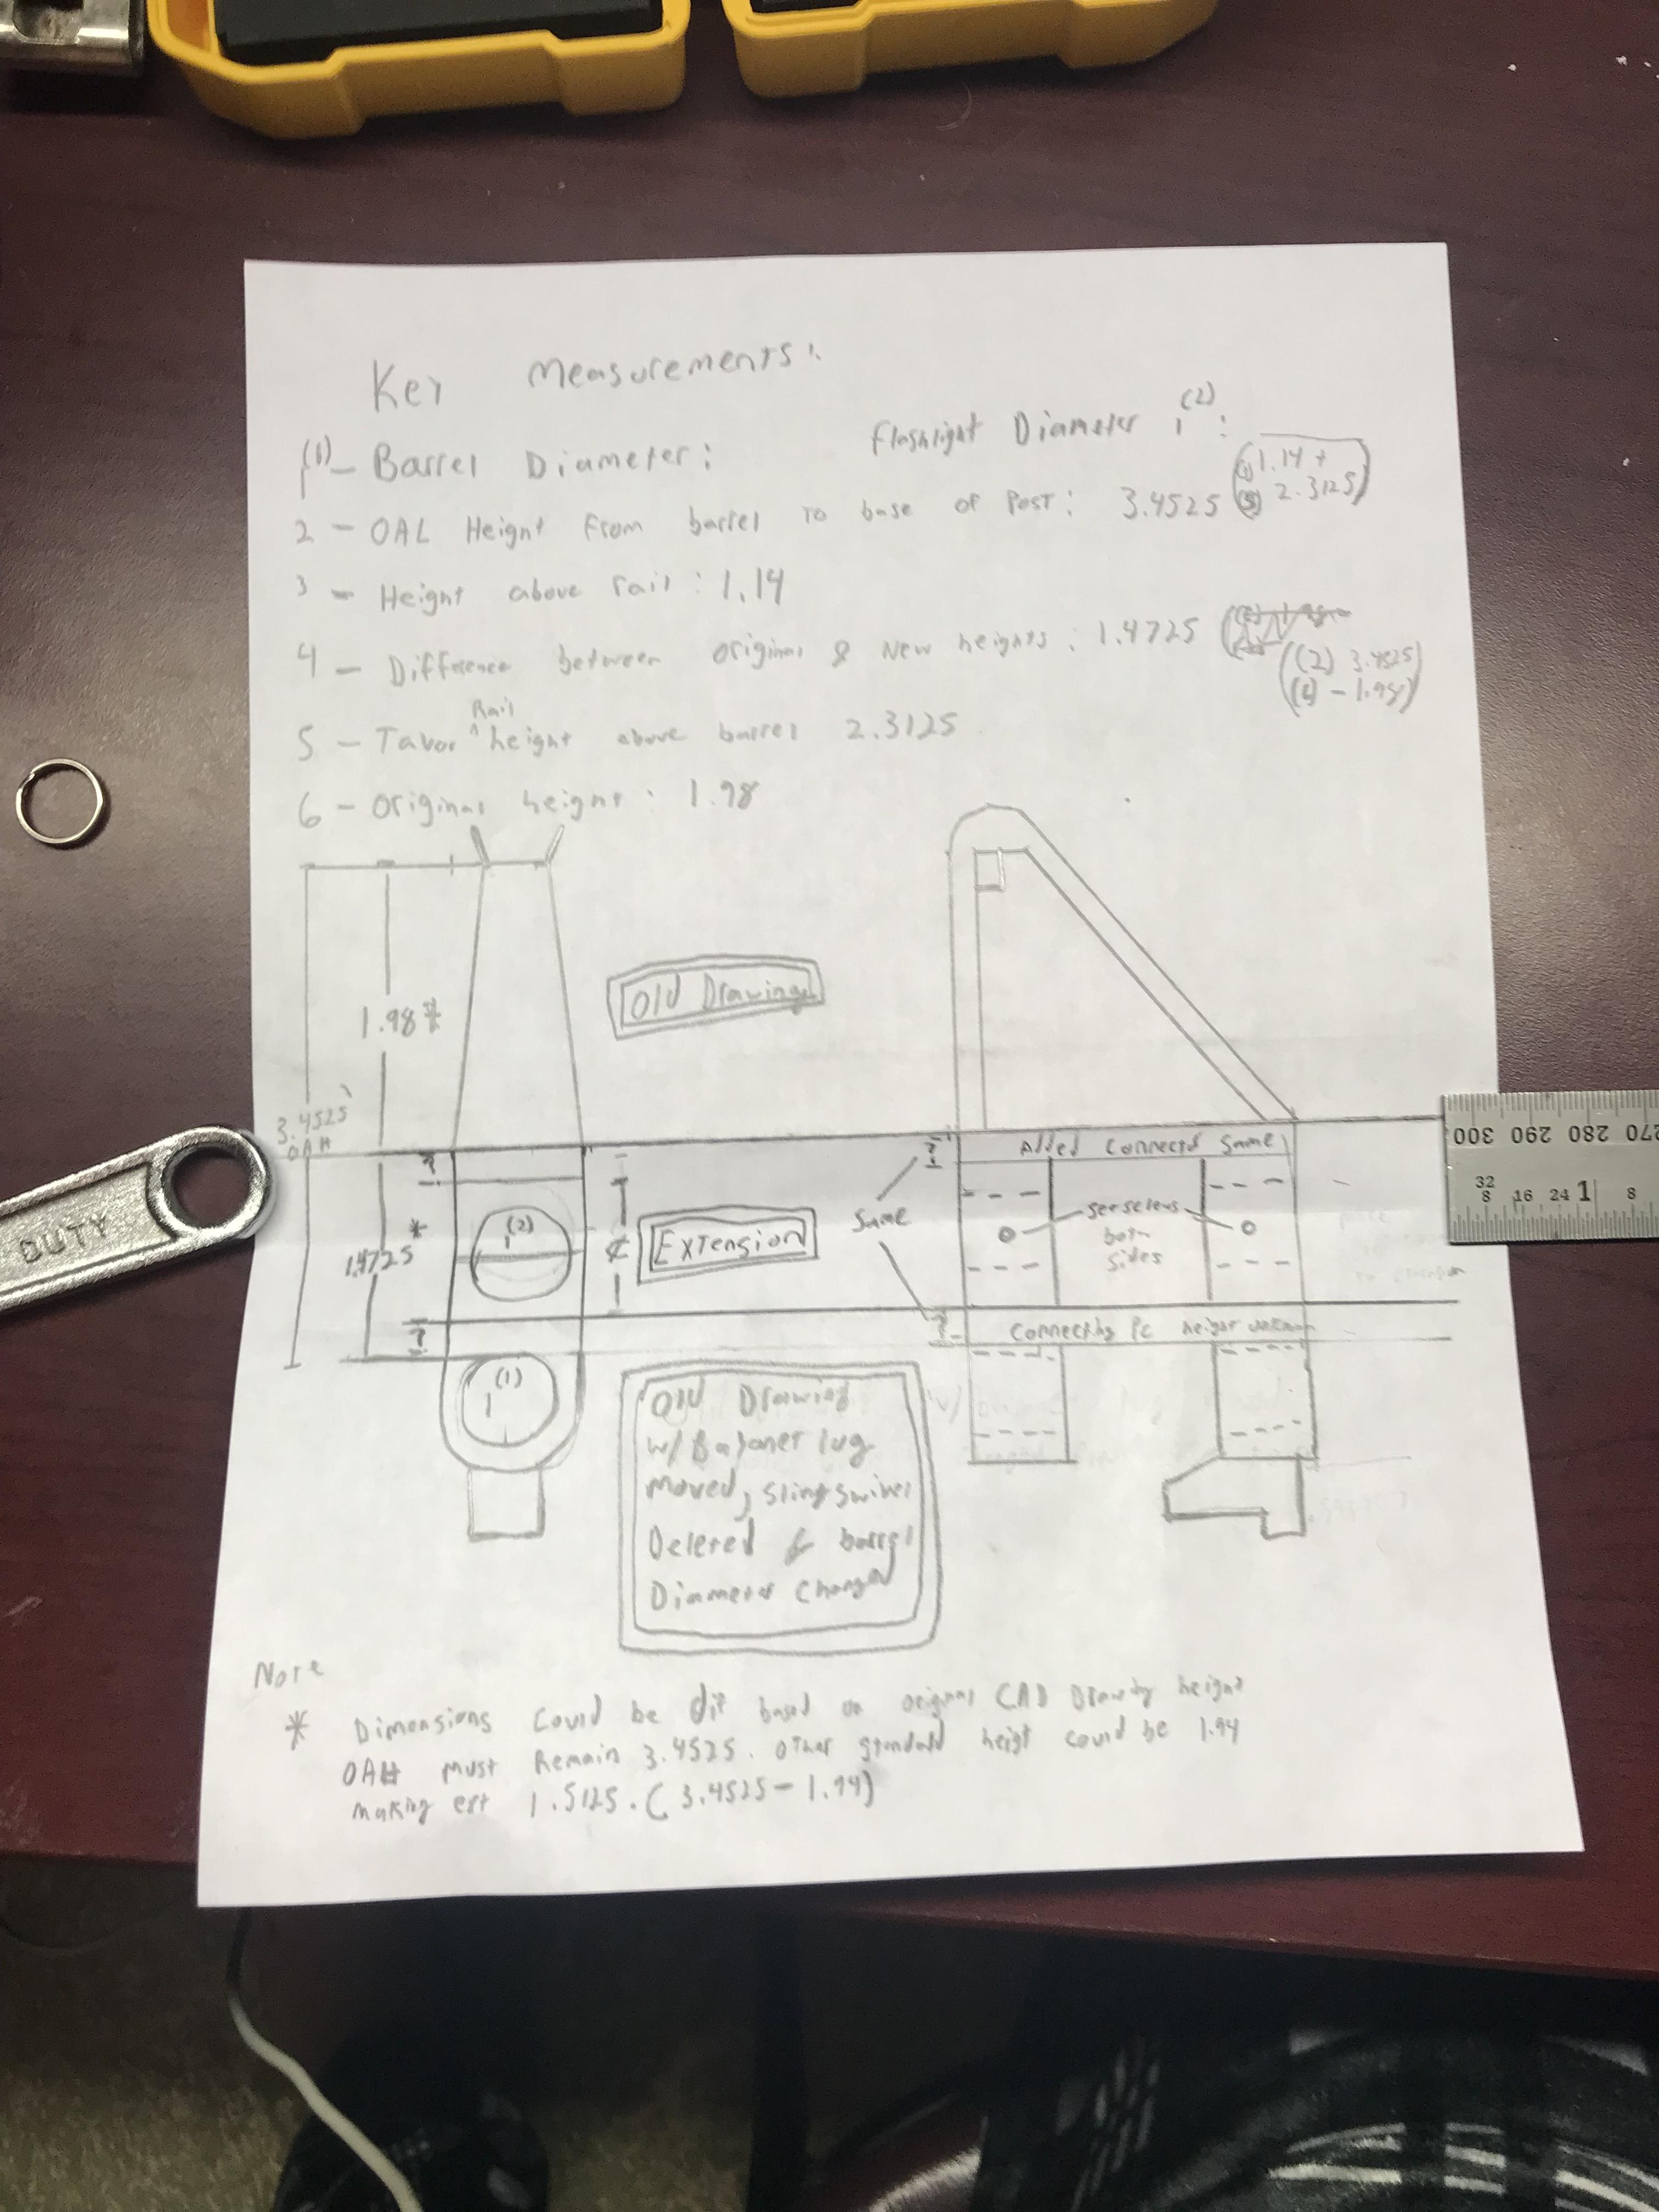 Key Measurements:
(1)
1 - Barrel Diameter:
Flashlight Diameter 1 (2):
2 - OAL Height From barrel To base of Post: 3.4525
(3) 1.14 +
(5) 2.3125
3 - Height above rail: 1.14
4 - Difference between original & New heights: 1.4725
((2) 3.4525
(6) - 1.98)
Rail
5 - Tavor ^ height above barrel 2.3125
6 - Original height: 1.98
1.98 *
Old Drawing
3.4525
OAH
?
Added Connects Same
?
(2)
1
*
1.4725
¢
Extension
Same
set screws
both
sides
?
?
Connecting Pc height unknown
(1)
1
Old Drawing
w/ Bayonet lug
Moved, sling swivel
Deleted & barrel
Diameter Changed
Note
* Dimensions could be dif based on original CAD Drawing height
OAH must Remain 3.4525. other standard height could be 1.94
making ext 1.5125. (3.4525 - 1.94)
DUTY
300 290 280 270
32
8 16 24 1 8